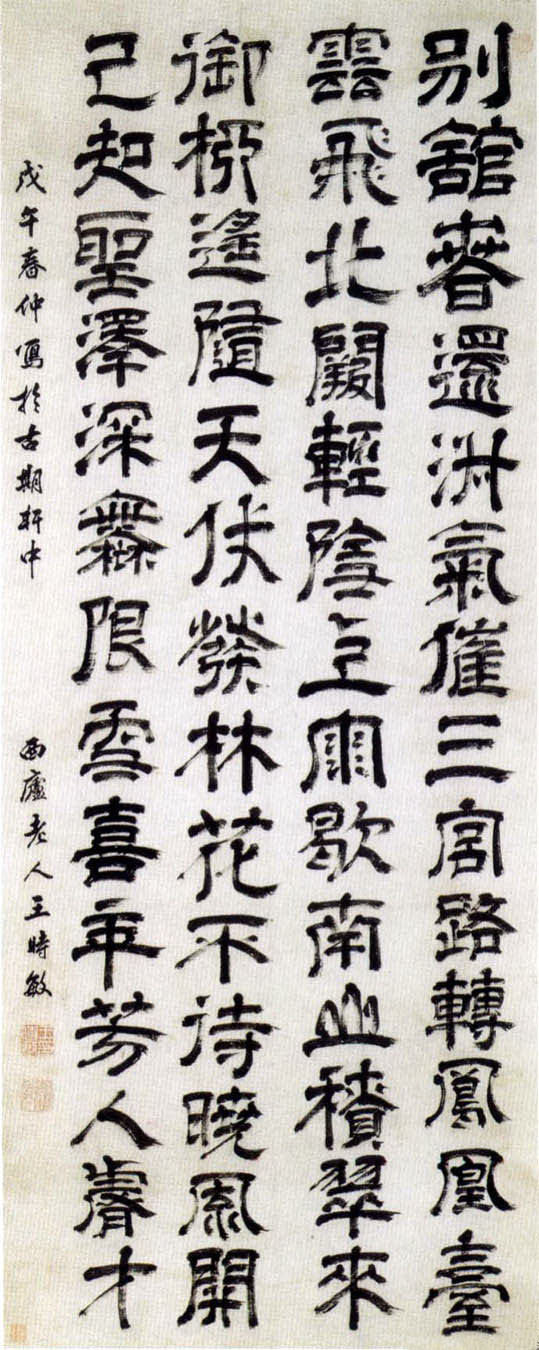 別舘春還淑氣催三宮路轉鳳凰臺
雲飛北闕輕陰雨歇南山積翠來
御柳遙隨天仗發林花不待曉風開
已知聖澤深無限更喜年芳入睿才
戊午春仲寫於古期軒中 西廬老人王時敏